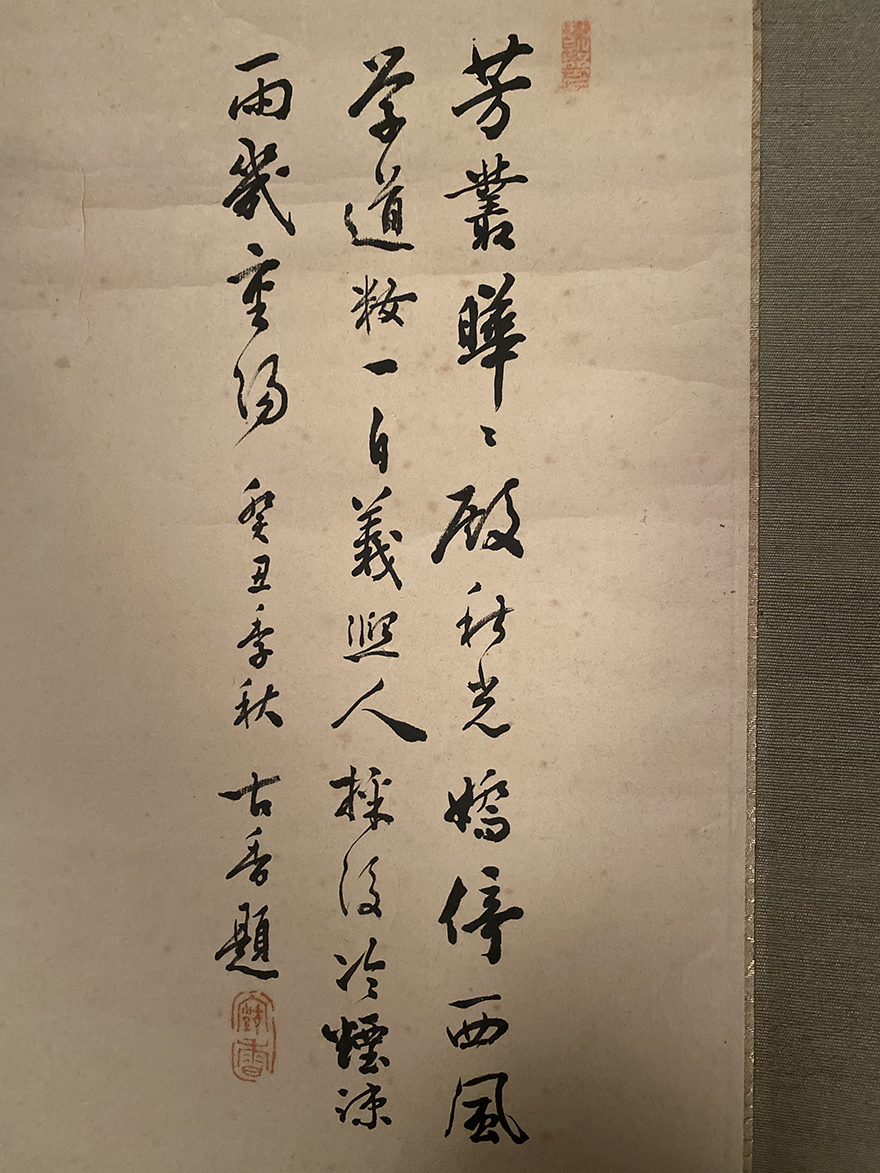 芳叢曄〻殿秋光嬌倚西風
学道粧一自義熙人採後冷煙疎
雨幾重陽 癸丑季秋 古香題